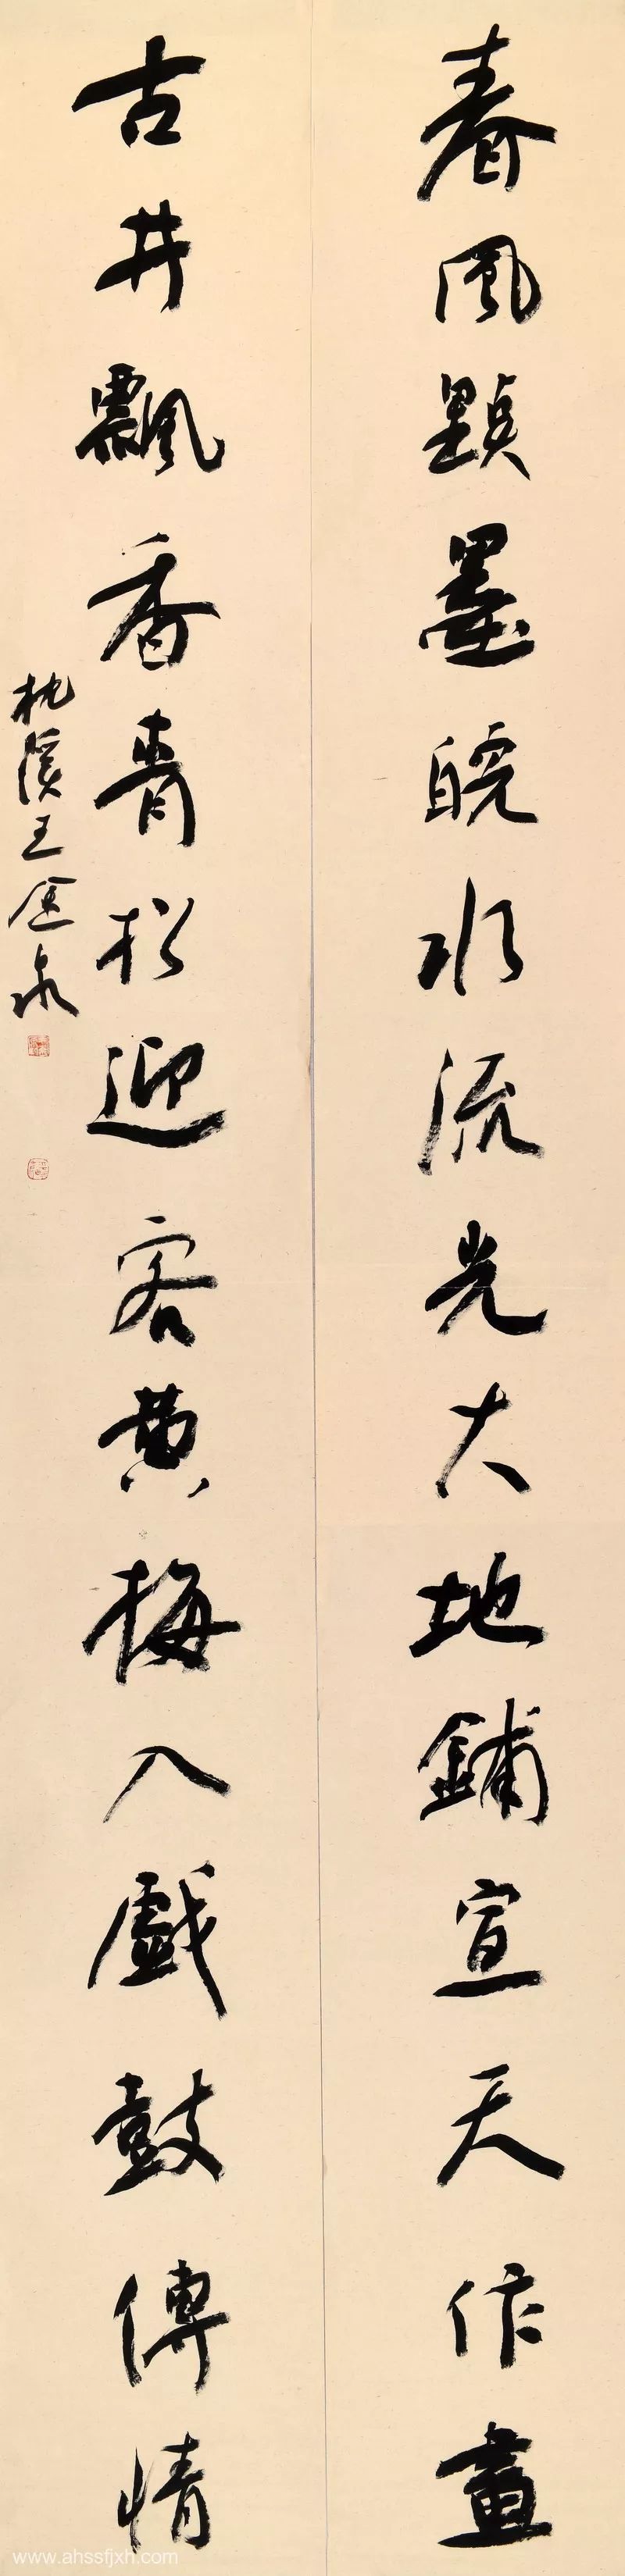 春風顥墨皖水流光大地鋪宣天作畫
古井飄香青松迎客黄梅入戲鼓傳情
枕溪王金泉
www.ahssfjxh.com